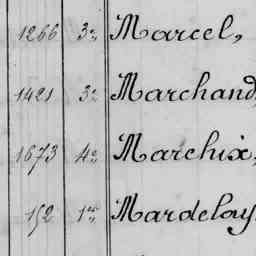 1266 3e Marcel,
1421 3e Marchand,
1673 4e Marchix,
152 1er Mardelay